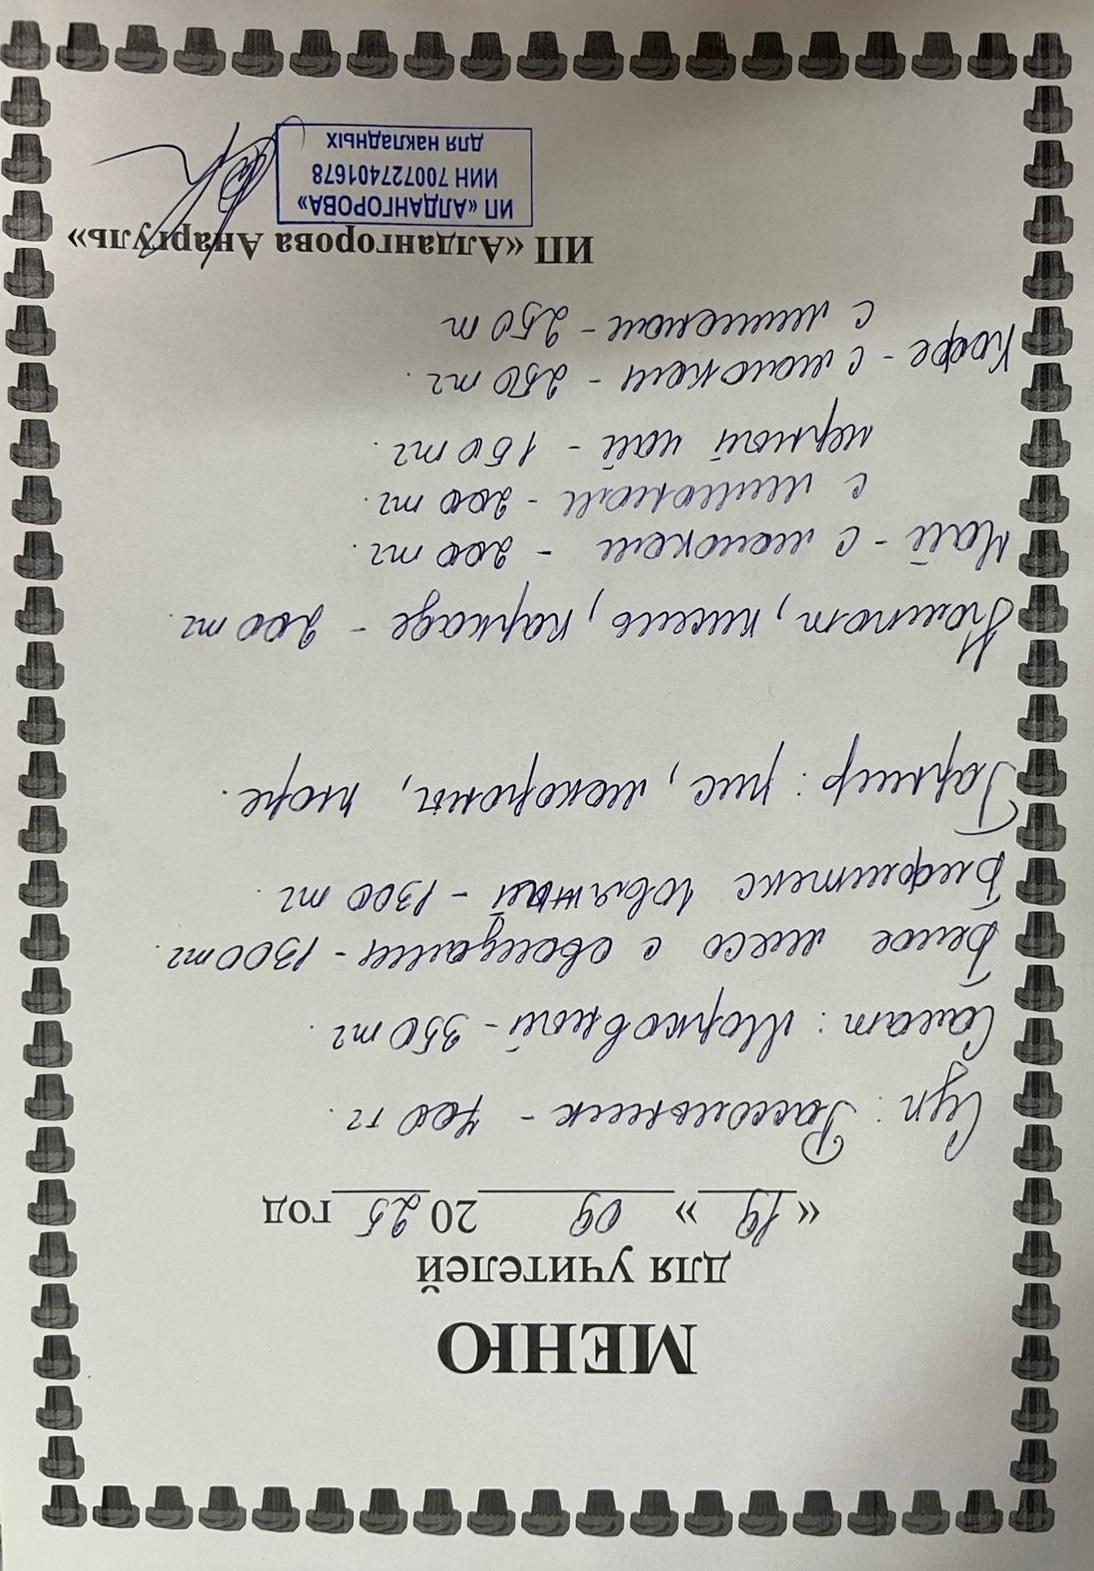 МЕНЮ
для учителей
« 19 » 09 2025 год
Суп: Рассольник - 700 тг.
Салат: Морковный - 350 тг.
Белое мясо с овощами - 1300 тг.
Бифштекс говяжый - 1300 тг.
Гарнир: рис, макароны, пюре.
Компот, кисель, каркаде - 200 тг.
Чай - с молоком - 200 тг.
с лимоном - 200 тг.
черный чай - 150 тг.
Кофе - с молоком - 250 тг.
с лимоном - 250 т
ИП «Алдангорова Анаргуль»
ИП «АЛДАНГОРОВА»
ИИН 700727401678
для накладных